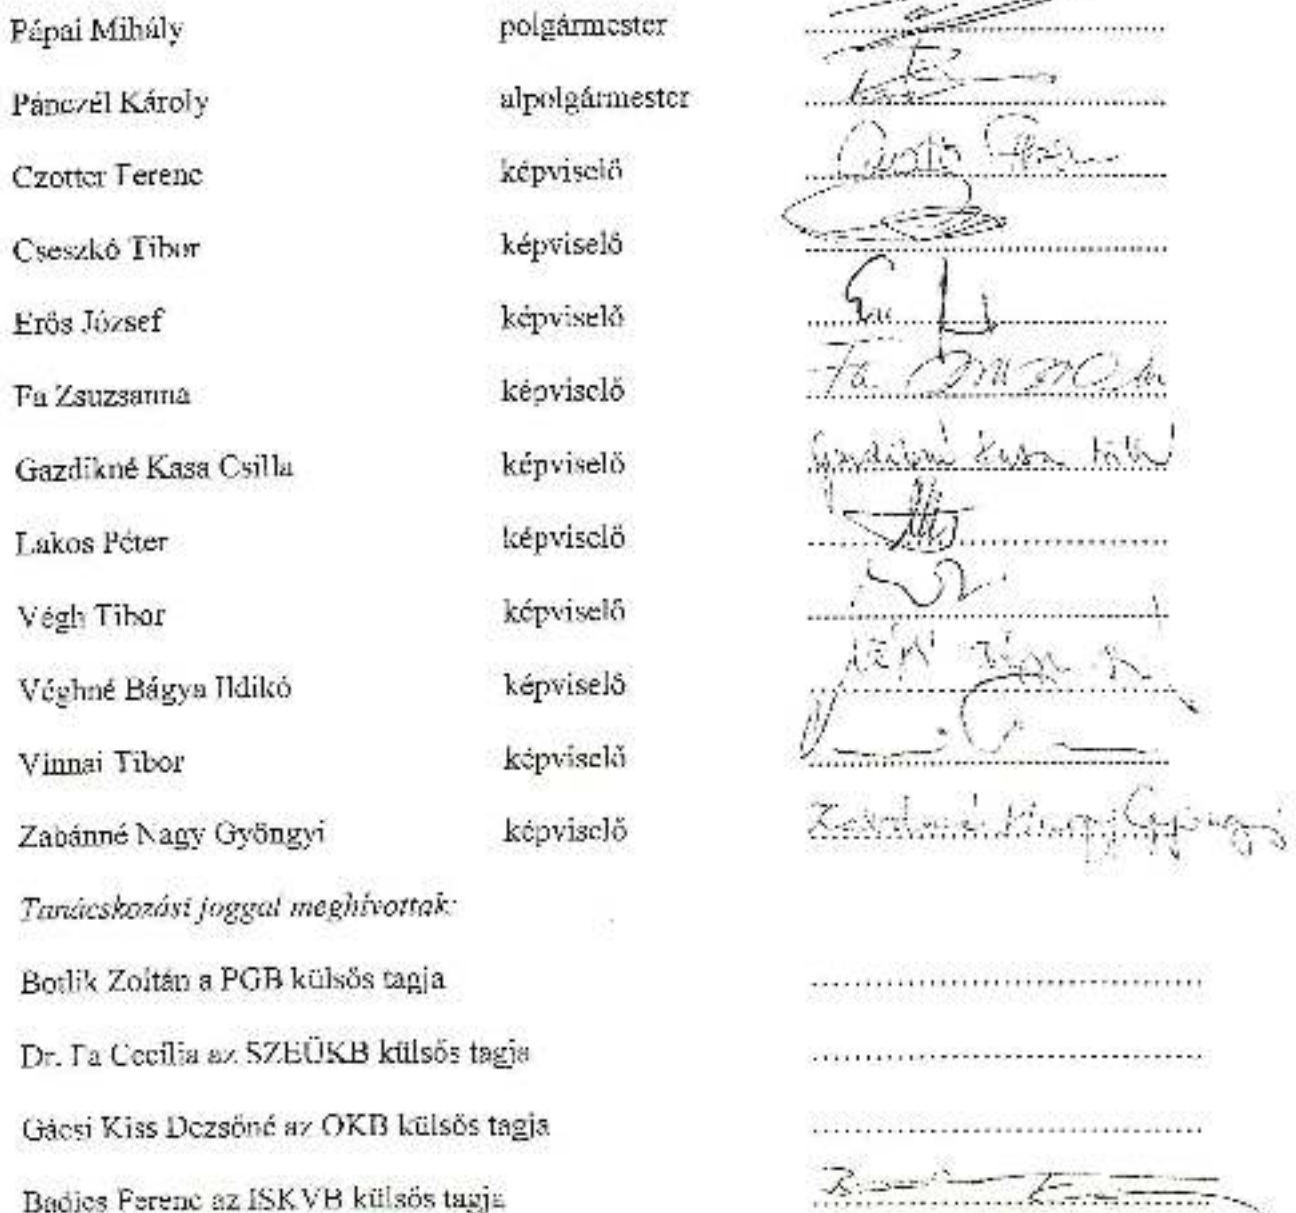 Pápai Mihály polgármester
Pánczél Károly alpolgármester
Czotter Ferenc képviselő
Cseszkó Tibor képviselő
Erős József képviselő
Fa Zsuzsanna képviselő Fa
Gazdikné Kasa Csilla képviselő Gazdikné Kasa
Lakos Péter képviselő
Végh Tibor képviselő
Véghné Bágya Ildikó képviselő
Vinnai Tibor képviselő
Zabánné Nagy Gyöngyi képviselő Zabánné Nagy Gyöngyi
Tanácskozási joggal meghívottak:
Botlik Zoltán a PGB külsős tagja
Dr. Fa Cecília az SZEÜKB külsős tagja
Gácsi Kiss Dezsőné az OKB külsős tagja
Badics Ferenc az ISKVB külsős tagja